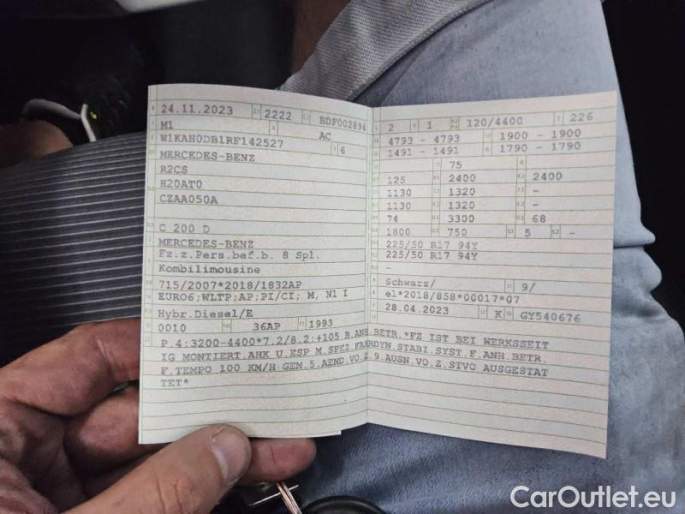 24.11.2023 2222 BDF002894
M1 AC
W1KAH0DB1RF142527 6
MERCEDES-BENZ
R2CS
H20AT0
CZAA050A
C 200 D
MERCEDES-BENZ
Fz.z.Pers.bef.b. 8 Spl.
Kombilimousine
715/2007*2018/1832AP
EURO6;WLTP;AP;PI/CI; M, N1 I
Hybr.Diesel/E
0010 36AP 1993
2 1 120/4400 226
4793 - 4793 1900 - 1900
1491 - 1491 1790 - 1790
75
125 2400 2400
1130 1320 -
1130 1320 -
74 3300 68
1800 750 5 -
225/50 R17 94Y
225/50 R17 94Y
-
Schwarz/ 9/
e1*2018/858*00017*07
28.04.2023 K GY540676
P.4:3200-4400*7.2/8.2:+105 B.ANH.BETR.*FZ IST BEI WERKSZEIT
IG MONTIERT.AHK U.ESP M.SPEZ FAHRDYN.STABI SYST.F.ANH.BETR.
F.TEMPO 100 KM/H GEM.5.AEND.VO.Z.9.AUSN.VO.Z.STVO AUSGESTAT
TET*
CarOutlet.eu